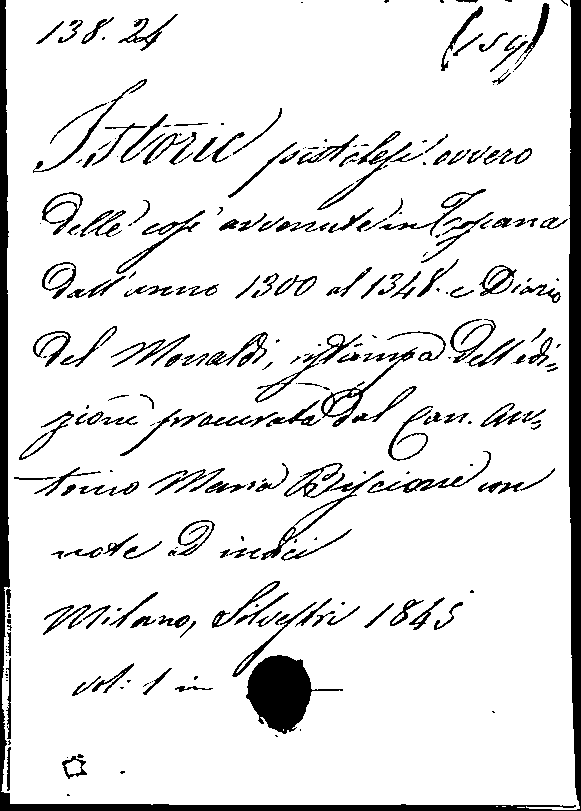 138. 24 (159)
Istorie pistolesi ovvero
delle cose avvenute in Toscana
dall'anno 1300 al 1348. e Diario
del Monaldi, ristampa dell'edi=
zione procurata dal Can. An=
tonio Maria Biscioni con
note D indici
Milano, Silvestri 1845
vol: 1 in